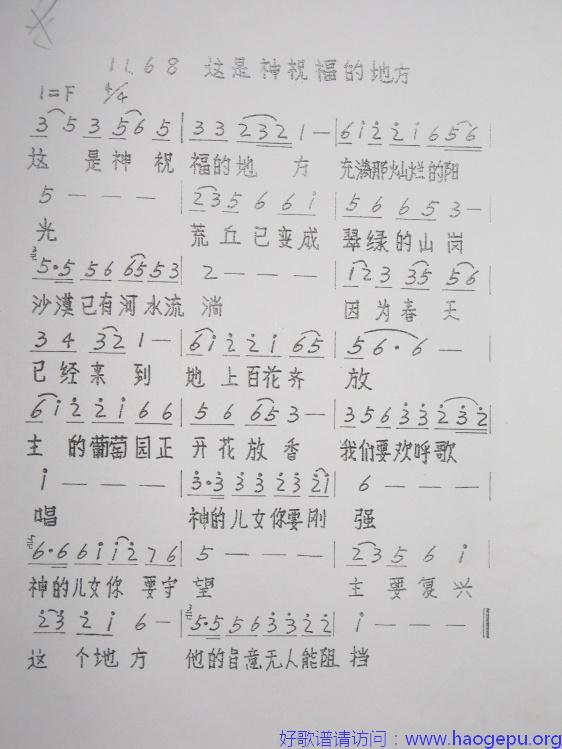 1168 这是神祝福的地方
1=F 4/4
3 5 3 5 6 5 | 3 3 2 3 2 1 — | 6 i 2 2 i 6 5 6 |
这 是神 祝 福的地 方 充满那灿烂的阳
5 — — — | 2 3 5 6 6 i | 5 6 6 5 3 — |
光 荒丘已变成 翠绿的山岗
5·5 5 6 6 5 5 3 | 2 — — — | 1 2 3 3 5 5 6 |
沙漠已有河水流 淌 因为春天
3 4 3 2 1 — | 6 i 2 2 i 6 5 | 5 6· 6 — |
已经来到 地上百花齐 放
6 i 2 2 i 6 6 | 5 6 6 5 3 — | 3 5 6 3 3 2 3 2 |
主 的葡萄园正 开花放香 我们要欢呼歌
i — — — | 3·3 3 3 2 3 2 i | 6 — — — |
唱 神的儿女你要刚 强
6·6 6 i i 2 7 6 | 5 — — — | 2 3 5 6 i |
神的儿女你 要守 望 主要复兴
2 3 2 i 6 — | 5·5 5 6 3 3 2 2 | i — — — ‖
这个地方 他的旨意无人能阻 挡
好歌谱请访问：www.haogepu.org